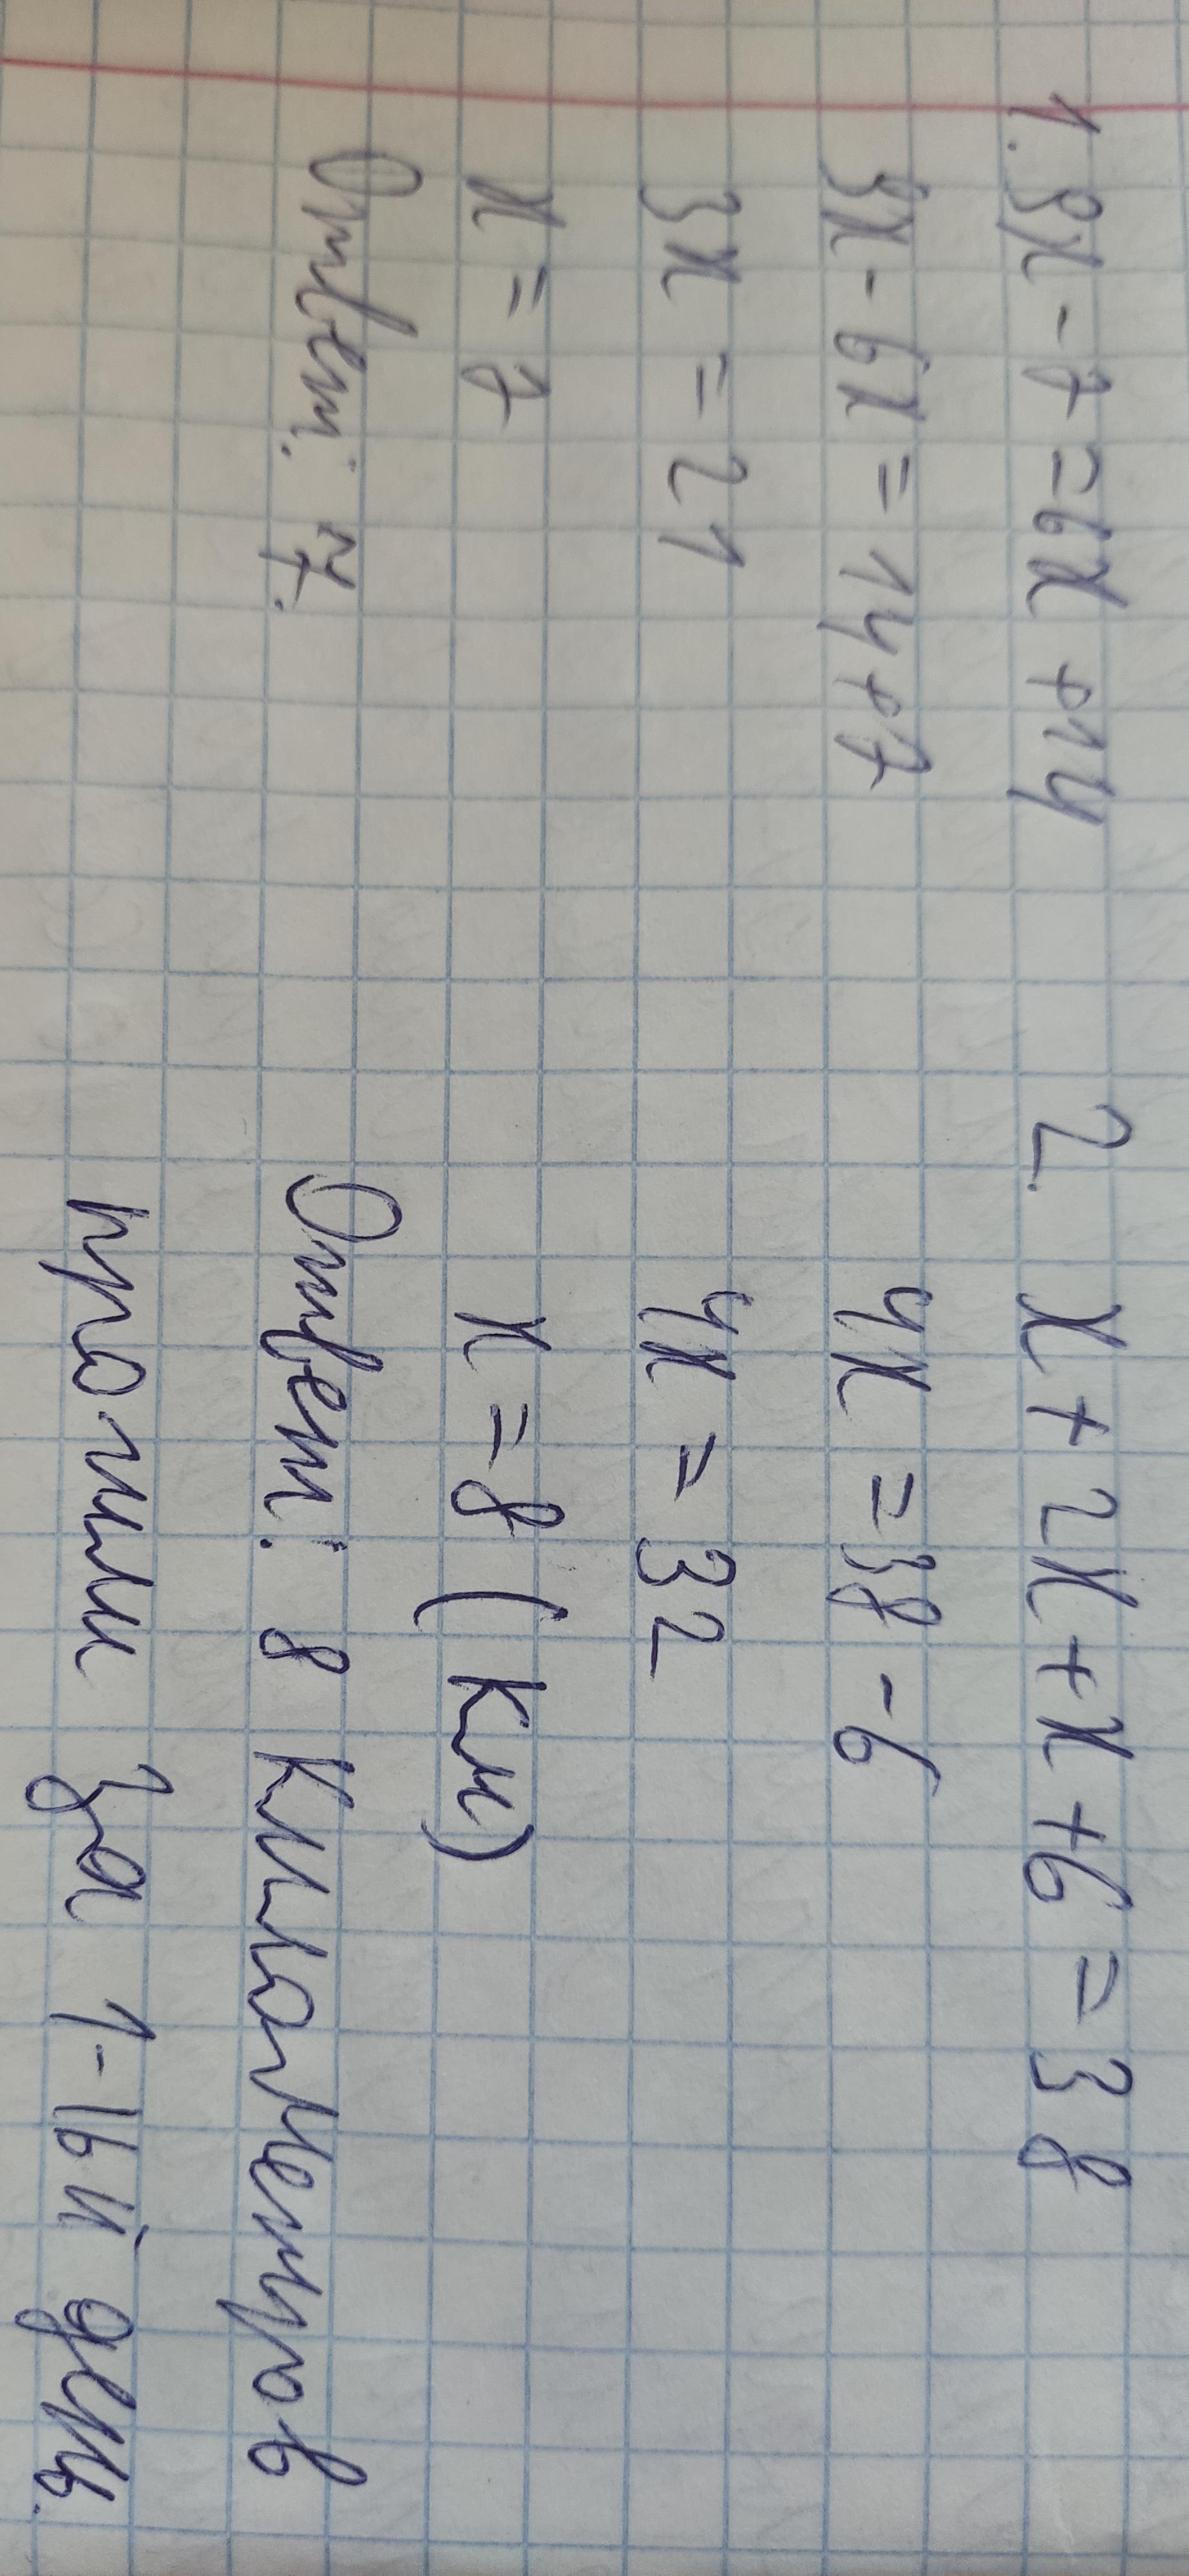 1. 9x - 7 = 6x + 14
9x - 6x = 14 + 7
3x = 21
x = 7
Ответ: 7.
2. x + 2x + x + 6 = 38
4x = 38 - 6
4x = 32
x = 8 (км)
Ответ: 8 километров
прошли за 1-ый день.